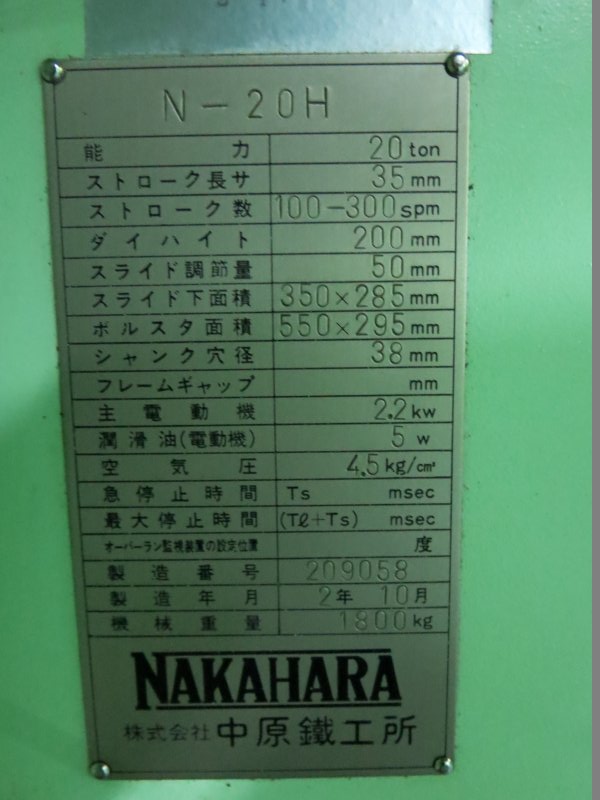 N-20H
能力 20 ton
ストローク長サ 35 mm
ストローク数 100-300 spm
ダイハイト 200 mm
スライド調節量 50 mm
スライド下面積 350×285 mm
ボルスタ面積 550×295 mm
シャンク穴径 38 mm
フレームギャップ mm
主電動機 2.2 kw
潤滑油(電動機) 5 w
空気圧 4.5 kg/cm²
急停止時間 Ts msec
最大停止時間 (Tℓ+Ts) msec
オーバーラン監視装置の設定位置 度
製造番号 209058
製造年月 2年 10月
機械重量 1800 kg
NAKAHARA
株式会社 中原鐵工所